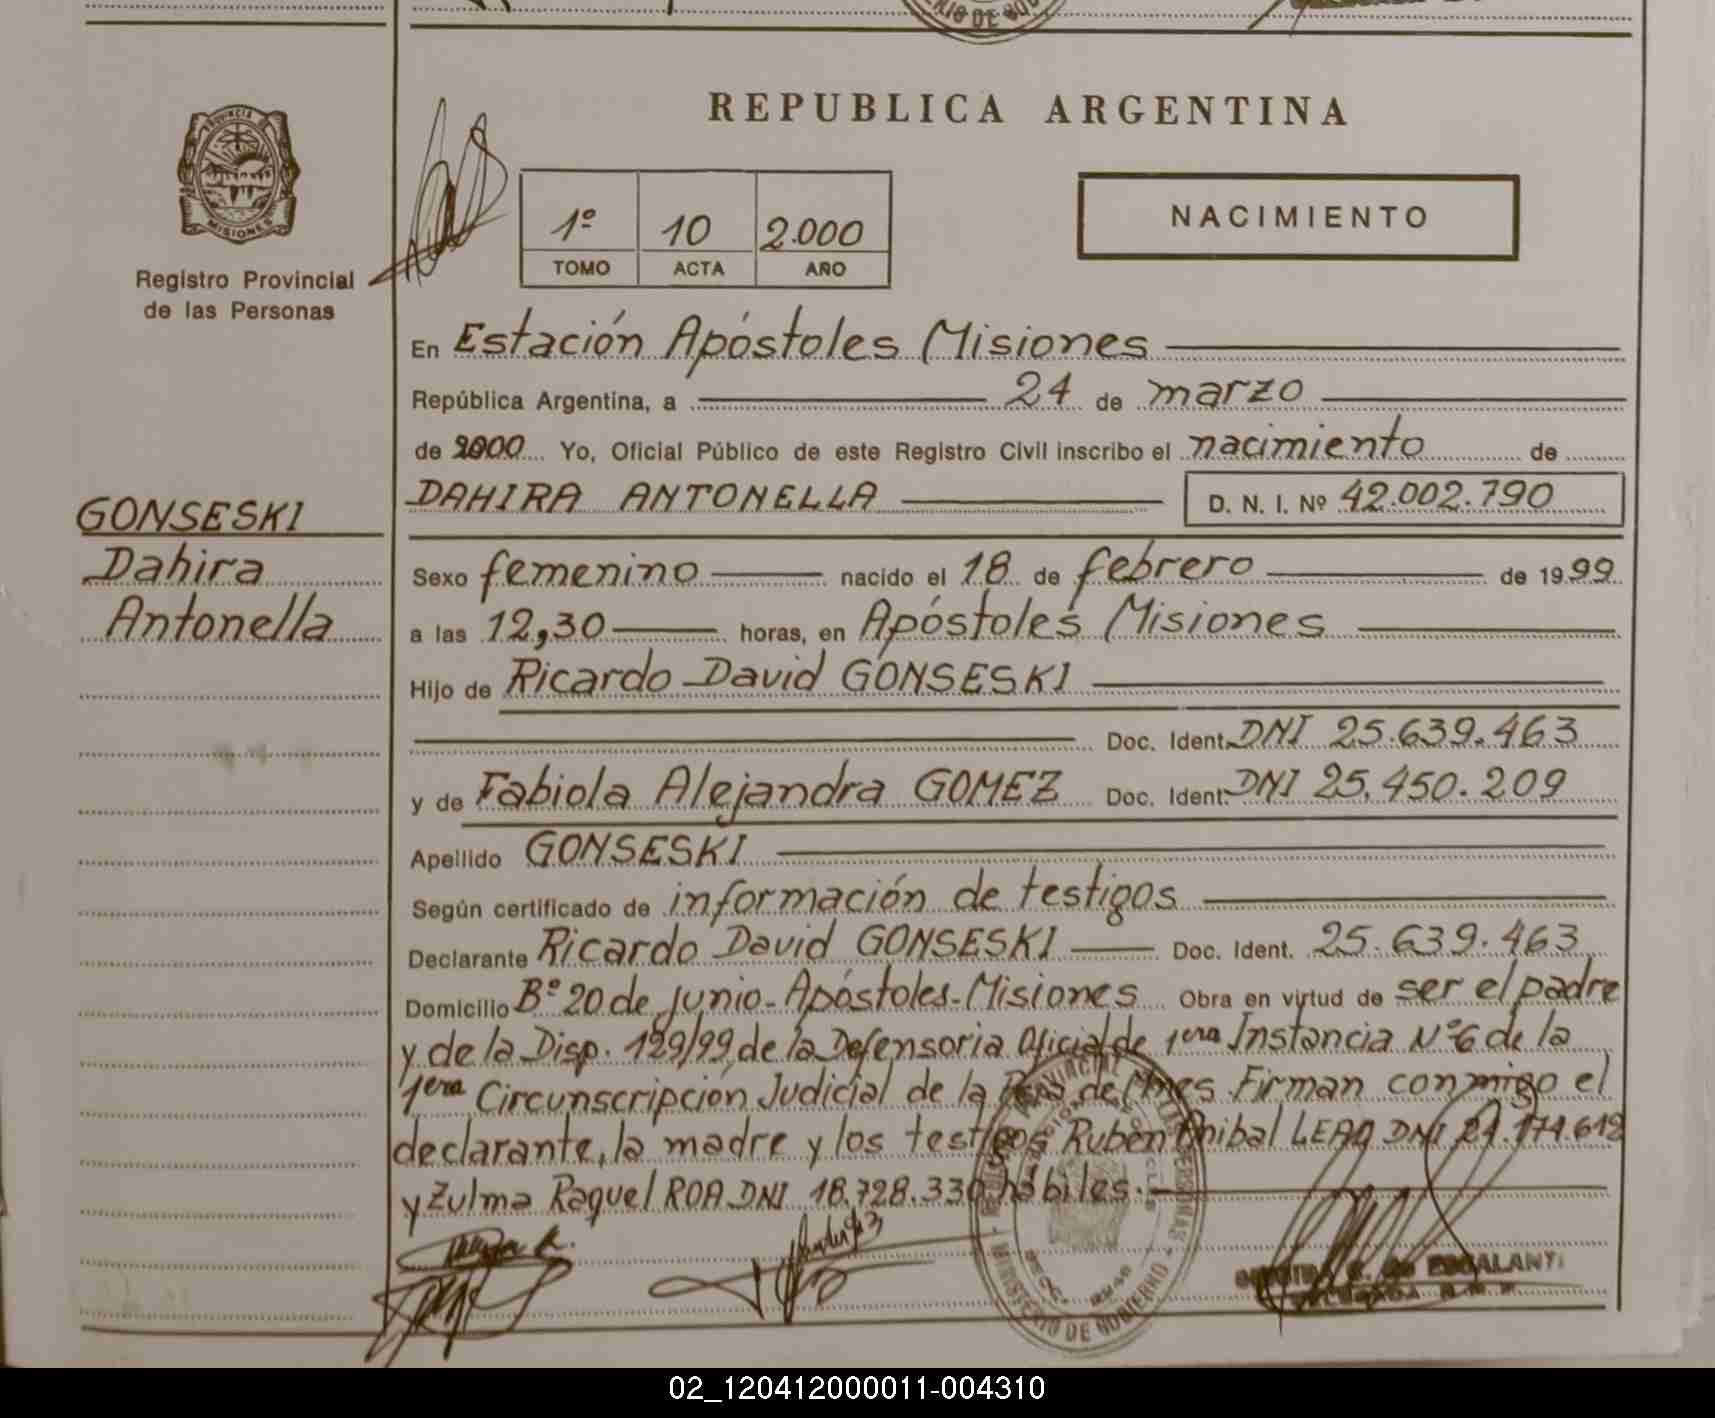 REPUBLICA ARGENTINA
PROVINCIA DE
MISIONES
Registro Provincial
de las Personas
1º 10 2.000
TOMO ACTA AÑO
NACIMIENTO
En Estación Apóstoles Misiones
República Argentina, a 24 de marzo
de 2000 Yo, Oficial Público de este Registro Civil inscribo el nacimiento de
DAHIRA ANTONELLA D. N. I. Nº 42.002.790
GONSESKI
Dahira
Antonella
Sexo femenino nacido el 18 de febrero de 1999
a las 12,30 horas, en Apóstoles Misiones
Hijo de Ricardo David GONSESKI
Doc. Ident. DNI 25.639.463
y de Fabiola Alejandra GOMEZ Doc. Ident. DNI 25.450.209
Apellido GONSESKI
Según certificado de información de testigos
Declarante Ricardo David GONSESKI Doc. Ident. 25.639.463
Domicilio Bº 20 de junio-Apóstoles-Misiones Obra en virtud de ser el padre
y de la Disp. 129/99 de la Defensoria Oficial de 1era Instancia Nº6 de la
1era Circunscripción Judicial de la Pcia de Mnes. Firman conmigo el
declarante, la madre y los testigos Ruben Anibal LEAO DNI
y Zulma Raquel ROA DNI 18.728.330 hábiles.-
MINISTERIO DE GOBIERNO
02_120412000011-004310